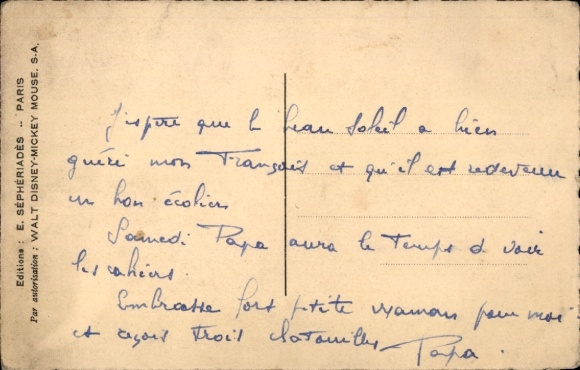 Editions : E. SÉPHERIADÈS -- PARIS
Par autorisation : WALT DISNEY-MICKEY MOUSE. S-A.
J'espère que le beau soleil a bien
guéri mon François et qu'il est redevenu
un bon écolier
Samedi Papa aura le temps de voir
les cahiers.
Embrasse fort petite maman pour moi
et reçois trois chatouilles Papa.